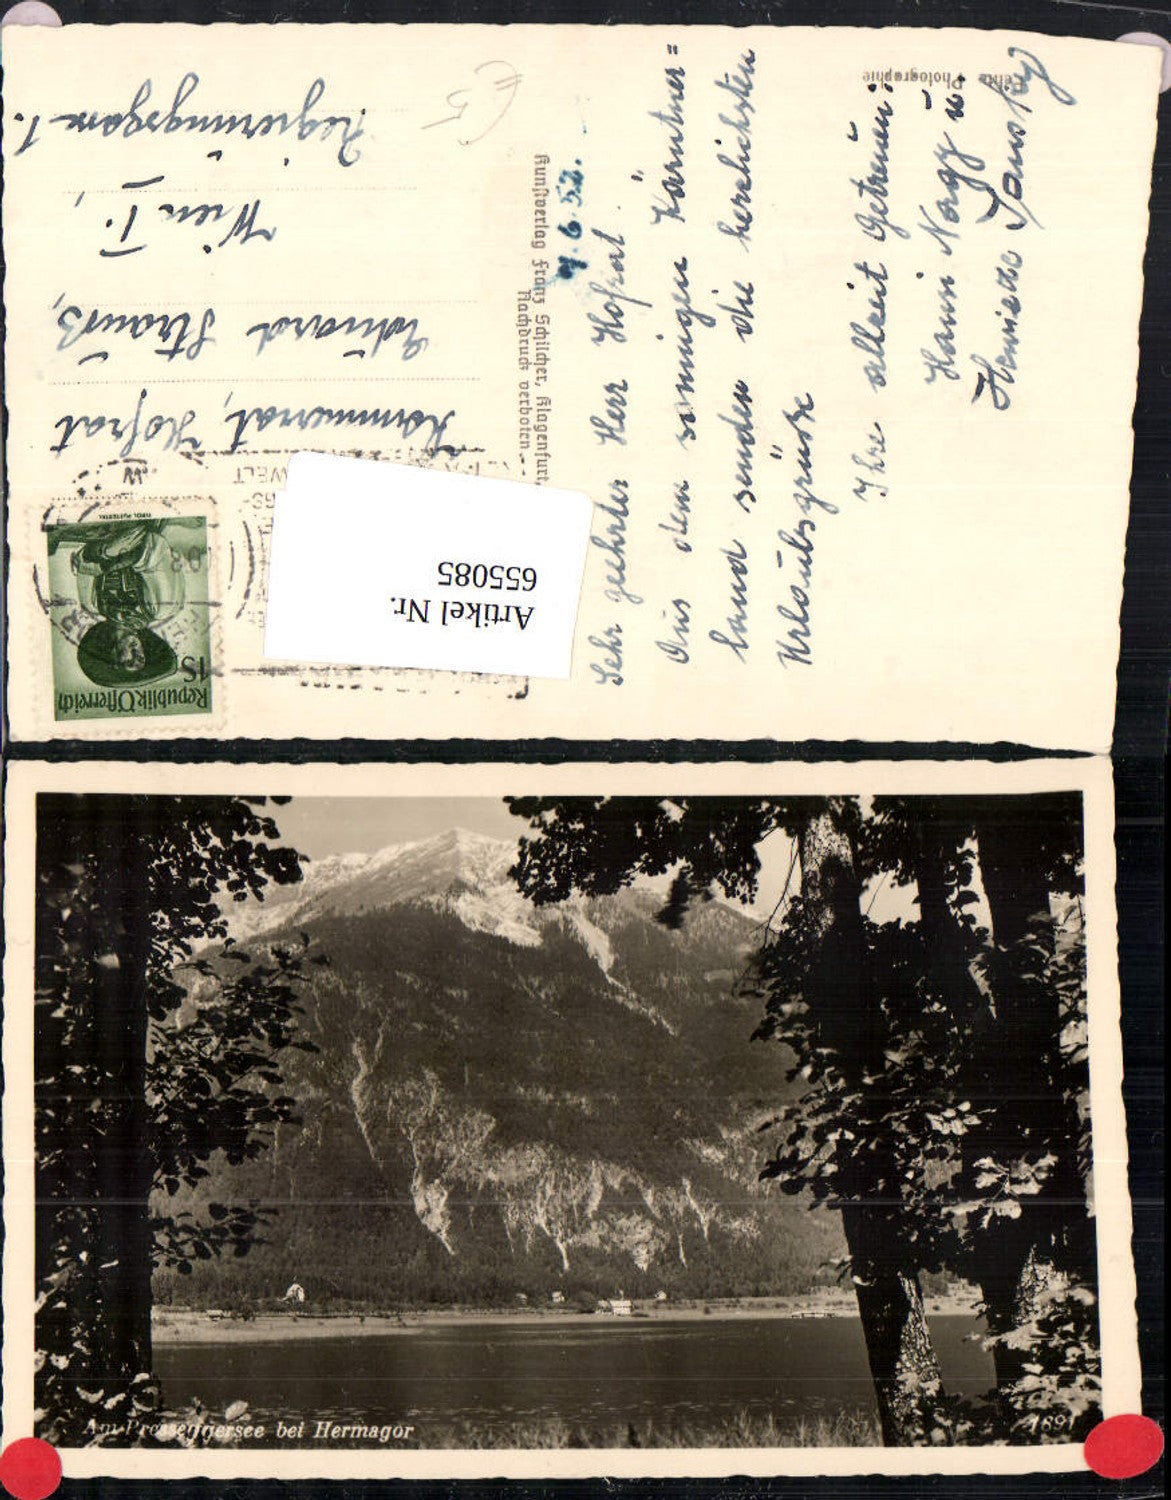 Echte Photographie
Sehr geehrter Herr Hofrat!
Aus dem sonnigen Kärntner=
land senden die herzlichsten
Urlaubsgrüsse
Ihre allzeit Getreuen:
Hanni Nagy u.
7.6.52.
Kunstverlag Franz Schilcher, Klagenfurt
Nachdruck verboten
Kommerzrat, Hofrat
Eduard Strauß,
Wien I.,
Regierungsgasse 1.
€ 5
WELT
Republik Österreich
1S
TIROL PUSTERTAL
Artikel Nr.
655085
Am Presseggersee bei Hermagor
1691